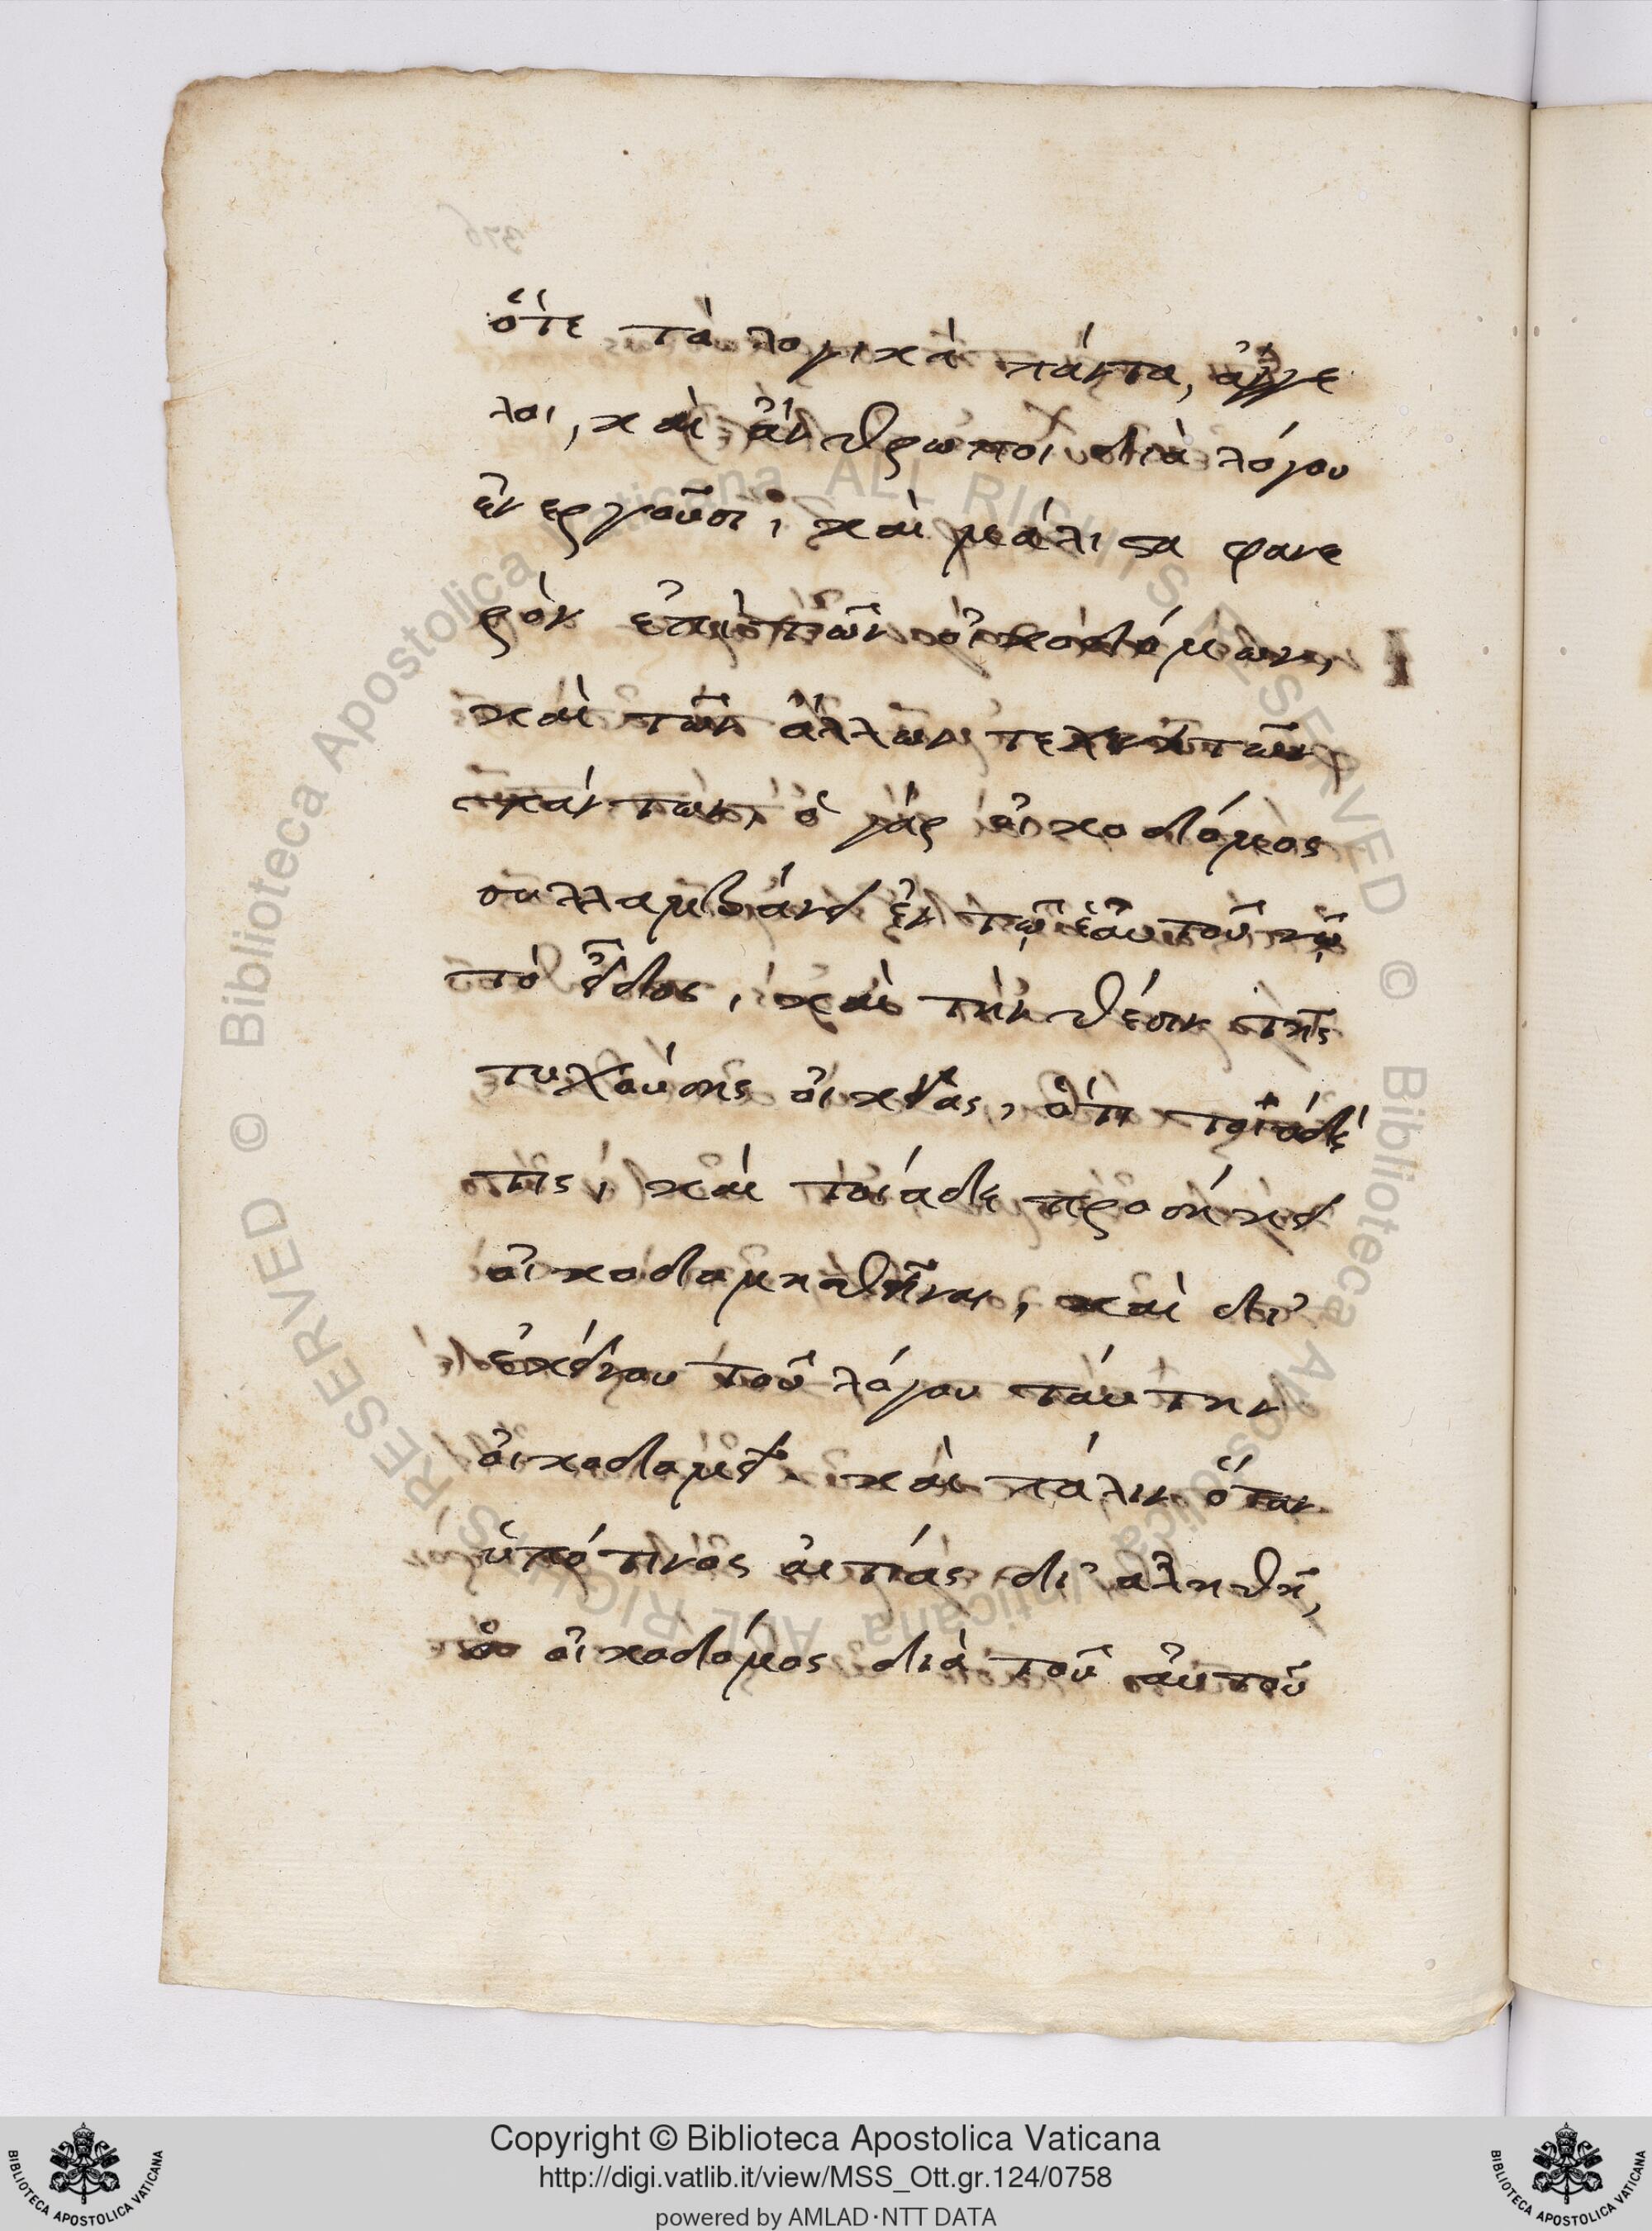 ὅτε τὰ λογικὰ πάντα, ἄγγε
λοι, καὶ ἄνθρωποι διὰ λόγου
ἐνεργοῦσι, καὶ μάλιστα φανε
ρὸν ἐπὶ τῶν οἰκοδόμων,
καὶ τῶν ἄλλων τεχνιτῶν
πάντων, ὁ γὰρ οἰκοδόμος
συλλαμβάνει ἐν τῷ ἑαυτοῦ νῷ
τὸ εἶδος, καὶ τὴν θέσιν τῆς
τυχούσης οἰκίας, ὅτι τοιάδέ
τις, καὶ τοιάδε προσήκει
οἰκοδομηθῆναι, καὶ δι'
ἐκείνου τοῦ λόγου ταύτην
οἰκοδομεῖ. καὶ πάλιν ὅταν
ὑπό τινος αἰτίας δι' ἀληθῆ,
ὁ οἰκοδόμος διὰ τοῦ αὐτοῦ
© Biblioteca Apostolica Vaticana ALL RIGHTS RESERVED
© Biblioteca Apostolica Vaticana ALL RIGHTS RESERVED
Copyright © Biblioteca Apostolica Vaticana
http://digi.vatlib.it/view/MSS_Ott.gr.124/0758
powered by AMLAD·NTT DATA
BIBLIOTECA APOSTOLICA VATICANA
BIBLIOTECA APOSTOLICA VATICANA